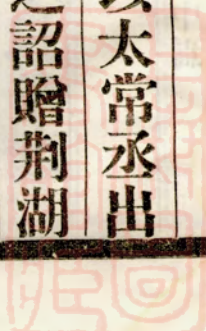 太常丞出
詔贈荆湖